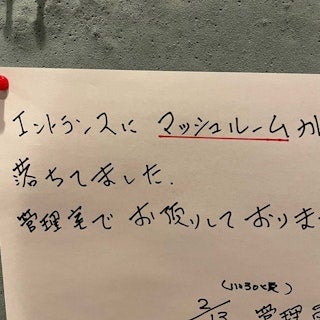 エントランスに マッシュルーム が
落ちてました.
管理室で お預りして おりま
(11:30頃)
2/13 管理員